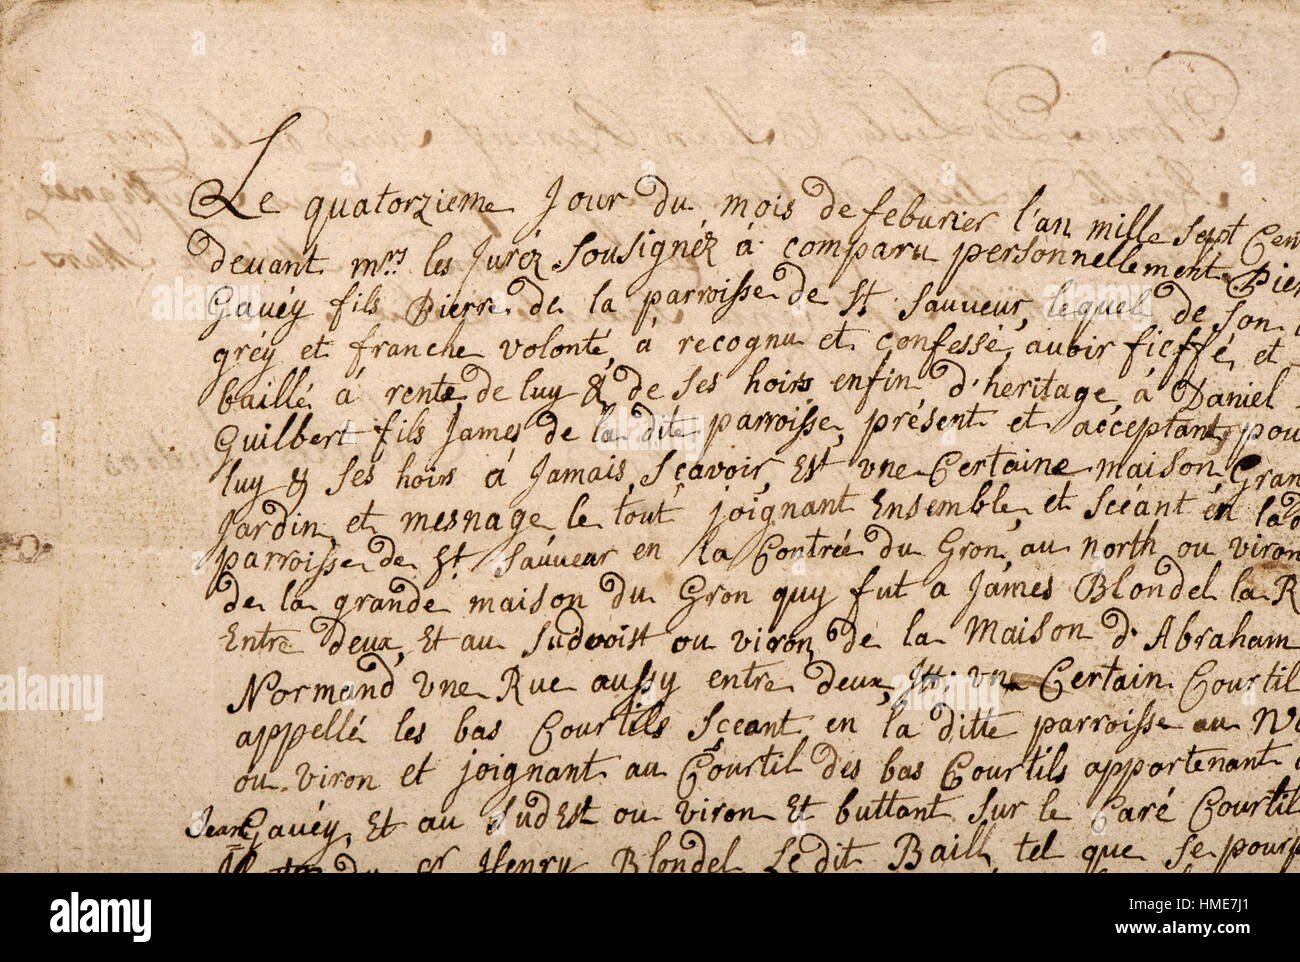 Le quatorzieme Jour du mois de feburier l'an mille sept Cen
devant mrs les Juréz Sousignéz à comparu personnellement Pier
Gavéy fils Pierre de la parroisse de St Sauveur, lequel de son
gréy et franche volonté, à recognu et confessé avoir fieffé et
baillé à rente de luy & de ses hoirs enfin d'heritage à Daniel
Guilbert fils James de la dite parroisse, présent et acceptant pou
luy & ses hoirs à Jamais, Sçavoir, Est vne Certaine maison, Gran
Jardin, et mesnage le tout joignant Ensemble, et Scéant en la
parroisse de St Sauveur en la Contrée du Gron, au north ou viron
de la grande maison du Gron quy fut a James Blondel la R
Entre deux, Et au Sudvoist ou viron de la Maison d'Abraham
Normand vne Rue aussy entre deux, Itt: vn Certain Courtil
appellé les bas Courtils Sçeant en la ditte parroisse au No
ou viron et joignant au Courtil des bas Courtils appartenant
Jean Gavéy, Et au SudEst ou viron Et buttant Sur le Caré Courtil
du Sr Henry Blondel Ledit Baill tel que se pourp
alamy stock photo
alamy
Image ID: HME7J1
www.alamy.com